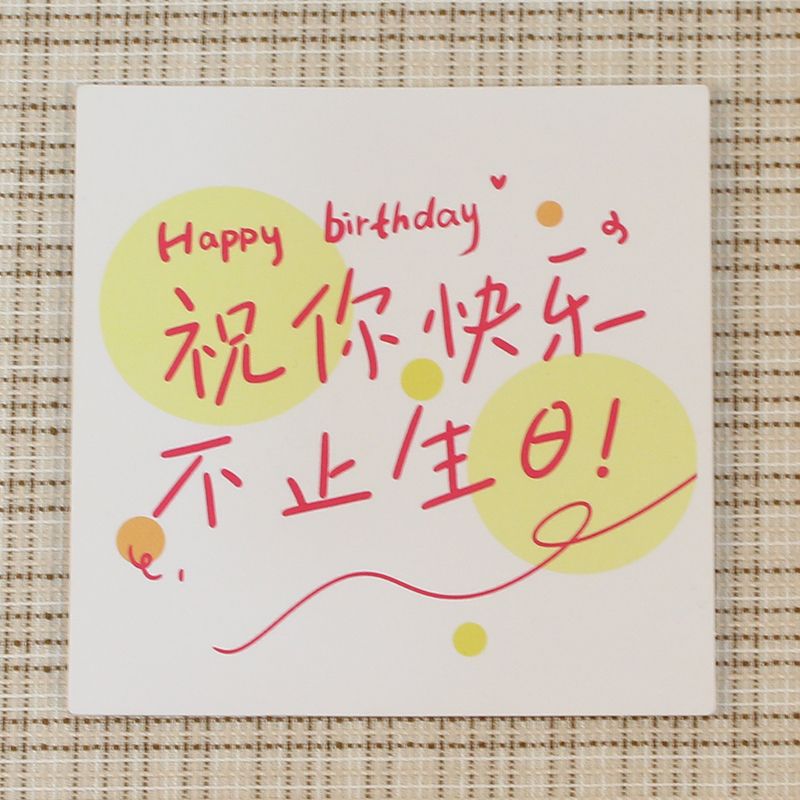 Happy birthday
祝你快乐
不止生日!